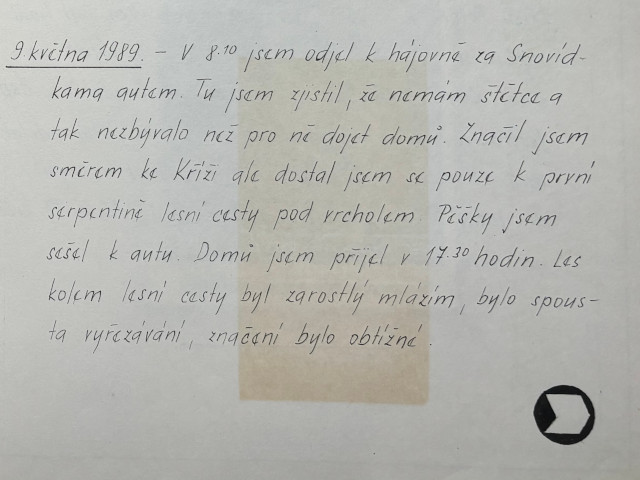 9. května 1989. – V 8.10 jsem odjel k hájovně za Snovíd-
kama autem. Tu jsem zjistil, že nemám štětce a
tak nezbývalo než pro ně dojet domů. Značil jsem
směrem ke Kříži ale dostal jsem se pouze k první
serpentině lesní cesty pod vrcholem. Pěšky jsem
sešel k autu. Domů jsem přijel v 17.30 hodin. Les
kolem lesní cesty byl zarostlý mlázím, bylo spous-
ta vyřezávání, značení bylo obtížné.